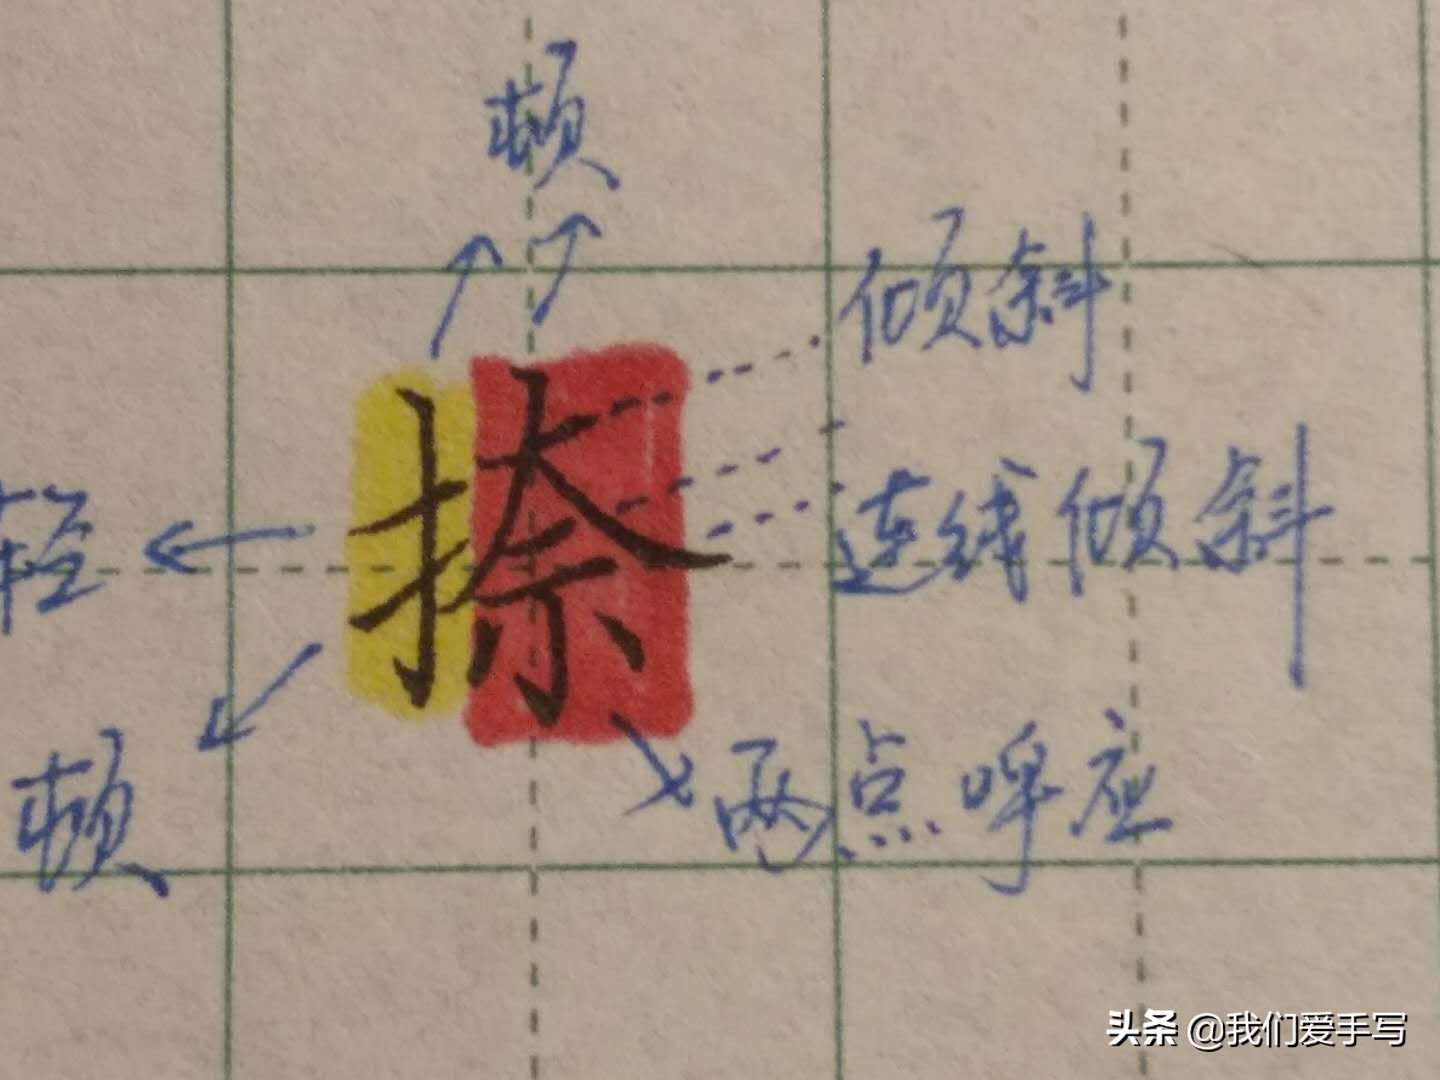 顿
倾斜
捺
轻
连线倾斜
顿
两点呼应
头条 @我们爱手写